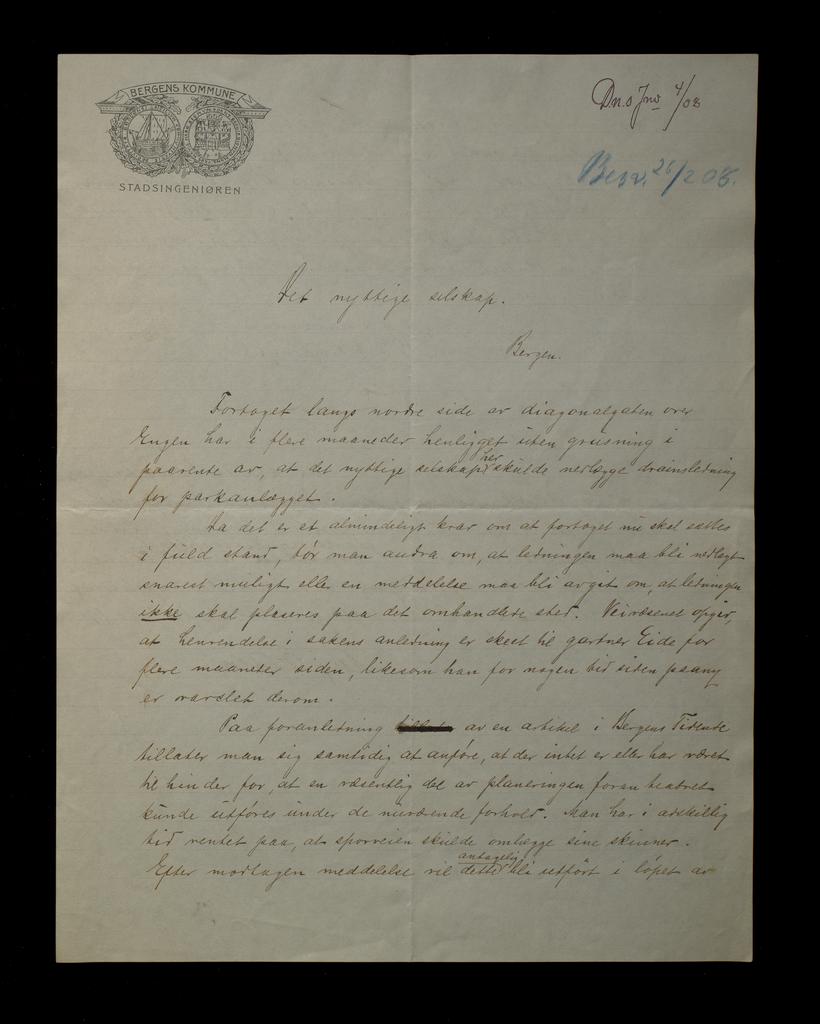 BERGENS KOMMUNE
STADSINGENIØREN
4/08
Besv. 26/2 08.
Det nyttige selskap.
Bergen.
Fortoget langs nordre side av diagonalgaten over
Engen har i flere maaneder henligget uten grusning i
paavente av, at det nyttige selskap her skulde nedlægge drainsledning
for parkanlægget.
Da det er et almindeligt krav om at fortoget nu skal sættes
i fuld stand, bør man andra om, at ledningen maa bli nedlagt
snarest muligt eller en meddelelse maa bli avgit om, at ledningen
ikke skal plaseres paa det omhandlede sted. Veivæsenet opgir,
at henvendelse i sakens anledning er skeet til gartner Eide for
flere maaneder siden, likesom han for nogen tid siden paany
er varslet derom.
Paa foranledning av en artikel i Bergens Tidende
tillater man sig samtidig at anføre, at der intet er eller har været
til hinder for, at en væsentlig del av planeringen foran teatret
kunde utføres under de nuværende forhold. Man har i adskillig
tid ventet paa, at sporveien skulde omlægge sine skinner.
Efter modtagen meddelelse vil dette antagelig bli utført i løpet av